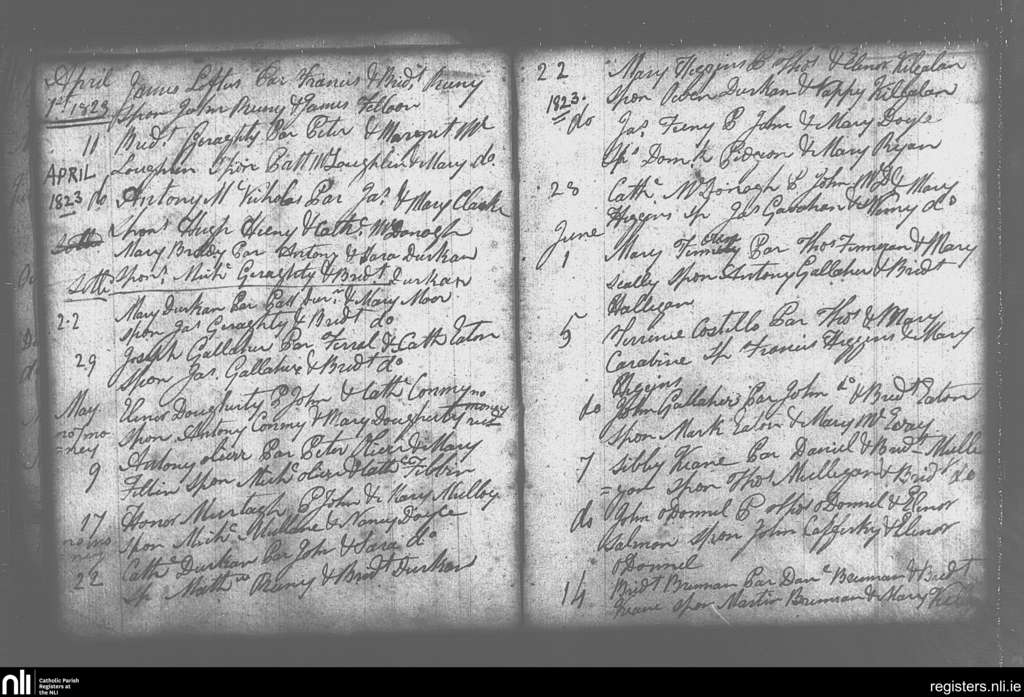 April James Loftus Par Francis & Bridt Pruny
1st 1823 Spon John Pruny & James Filloon
11 Bridt Geraghty Par Peter & Margret Mc
APRIL Loughlin Spon Patt McLoughlin & Mary do
1823 do Antony McNicholas Par Jas & Mary Clark
Spons Hough Heeny & Cathe McDonogh
20th Mary Brady Par Antony & Sara Durkan
20th Spons Michl Geraghty & Bridt Durkan
22 Mary Durkan Par Patt Durn & Mary Moor
Spon Jas Geraghty & Bridt do
29 Joseph Gallaher Par Ferral & Cath Eaton
Spon Jas Gallaher & Bridt do
May Elinor Dougherty P John & Cathe Conmy no
no mo Spon Antony Conmy & Mary Dougherty money
=ney
9 Antony olierr Par Peter olierr & Mary
Fillin Spon Michl olierr & Cathe Tibbin
17 Honor Murtagh P John & Mary Mulloy
no mo Spon Michl Mullane & Nancy Doyle
ney
22 Cathe Durkan Par John & Sara do
Sp Matthw Pruny & Bridt Durkan
22 Mary Higgins P Thos & Elinor Kilgalan
1823. Spon Owen Durkan & Pappy Killgalan
do Jas Finy P John & Mary Doyle
Sps Domk Pidgeon & Mary Ryan
28 Cathe McDonogh P John McD & Mary
Higgins Sp Jas Gaughan & Nancy do
June
1 Mary Finnegan Par Thos Finnegan & Mary
Scally Spon Antony Gallaher & Bridt
Hallegan
5 Terrence Costillo Par Thos & Mary
Carabine Sp Francis Higgins & Mary
Higgins
do John Gallaher Par John do & Bridt Eaton
Spon Mark Eaton & Mary McEvay
7 Sibby Keane Par Daniel & Bridt Mulle
=gan Spon Thos Mullegan & Bridt do
do John oDonnel P Thos oDonnel & Elinor
Salmon Spon John Cafferky & Elinor
oDonnel
14 Bridt Brunan Par Danl Brunan & Bridt
Keane Spon Martin Brunan & Mary
nli Catholic Parish
Registers at
the NLI
registers.nli.ie